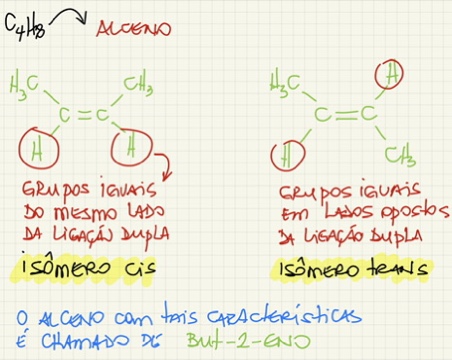 C4H8 ALCENO
H3C CH3
C=C
H H
H
H3C
C=C
H CH3
GRUPOS IGUAIS
DO MESMO LADO
DA LIGAÇÃO DUPLA
ISÔMERO CIS
GRUPOS IGUAIS
EM LADOS OPOSTOS
DA LIGAÇÃO DUPLA
ISÔMERO TRANS
O ALCENO COM TAIS CARACTERÍSTICAS
É CHAMADO DE BUT-2-ENO